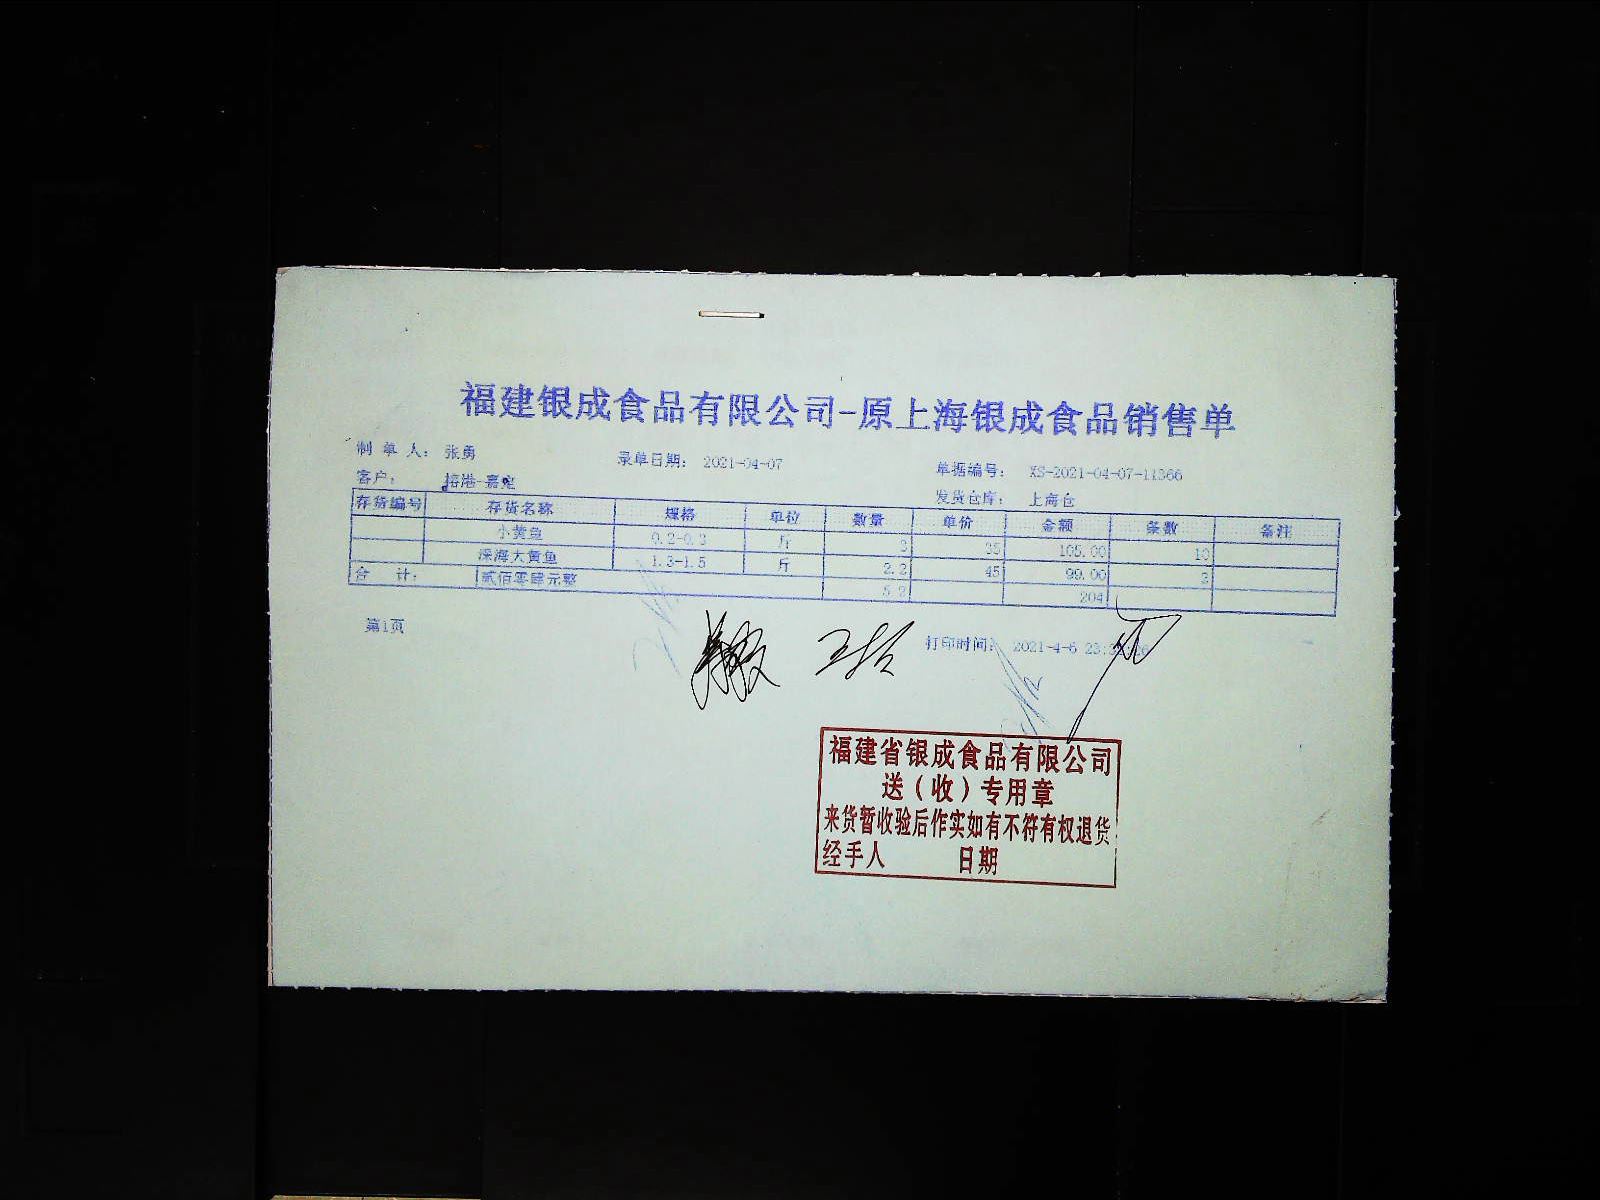 福建银成食品有限公司-原上海银成食品销售单
制 单 人： 张勇 录单日期： 2021-04-07 单据编号： XS-2021-04-07-11366
客户： 榕港-嘉定 发货仓库： 上海仓
存货编号 存货名称 规格 单位 数量 单价 金额 条数 备注
小黄鱼 0.2-0.3 斤 3 35 105.00
深海大黄鱼 1.3-1.5 斤 2.2 45 99.00 2
合 计： 贰佰零肆元整 5.2 204
第1页 打印时间： 2021-4-6
福建省银成食品有限公司
送（收）专用章
来货暂收验后作实如有不符有权退货
经手人 日期